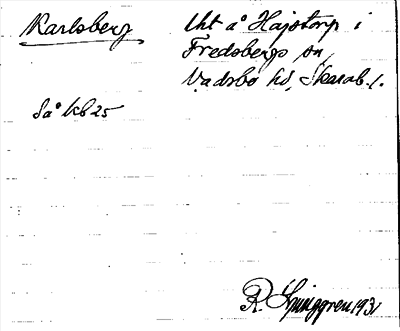 Karlsberg
Uht å Hajstorp i
Fredsbergs sn,
Vadsbo hd, Skarab. l.
Så Kb 25
R. Ljunggren 1931